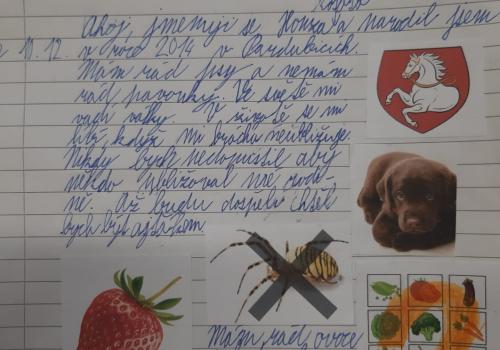 Ahoj, jmenuji se Honza a narodil jsem
se 10. 12. v roce 2014 v Pardubicích.
Mám rád psy a nemám
rád pavouky. Ve světě mi
vadí války. V životě se mi
líbí když mi brácha neubližuje.
Nikdy bych nedopustil aby
někdo ubližoval mé rodi-
ně. Až budu dospělí chtěl
bych být ajťákem
Mám rád ovoce